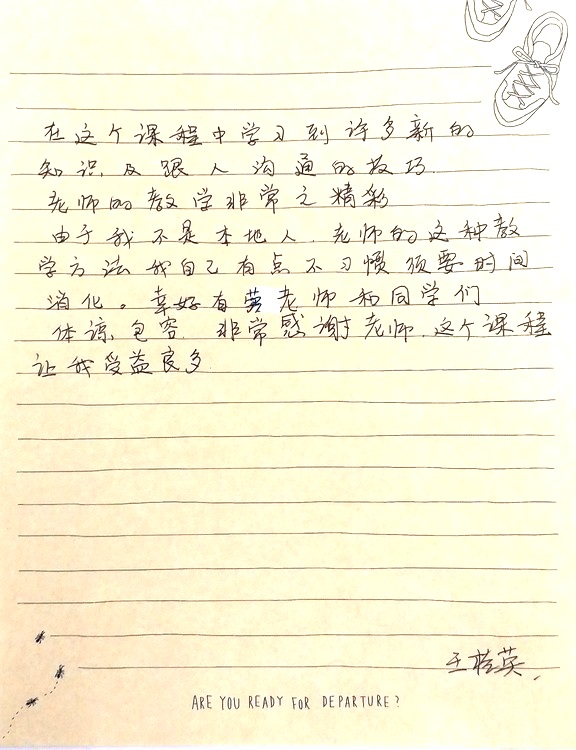 在这个课程中学习到许多新的
知识及跟人沟通的技巧.
老师的教学非常之精彩
由于我不是本地人.老师的这种教
学方法我自己有点不习惯须要时间
消化。幸好有蔡老师和同学们
体谅包容.非常感谢老师.这个课程
让我受益良多.
王桂英.
ARE YOU READY FOR DEPARTURE?